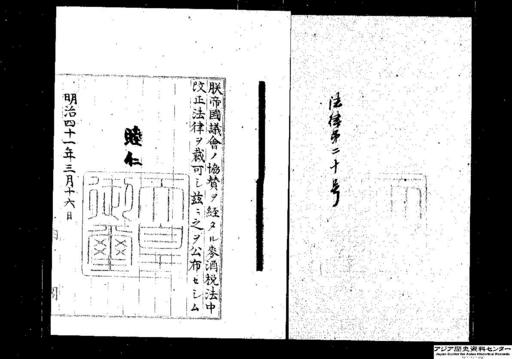 法律第二十号
朕帝國議會ノ協賛ヲ経タル麥酒税法中
改正法律ヲ裁可シ茲ニ之ヲ公布セシム
睦仁
天皇御璽
明治四十一年三月十六日
内閣
アジア歴史資料センター
Japan Center for Asian Historical Records